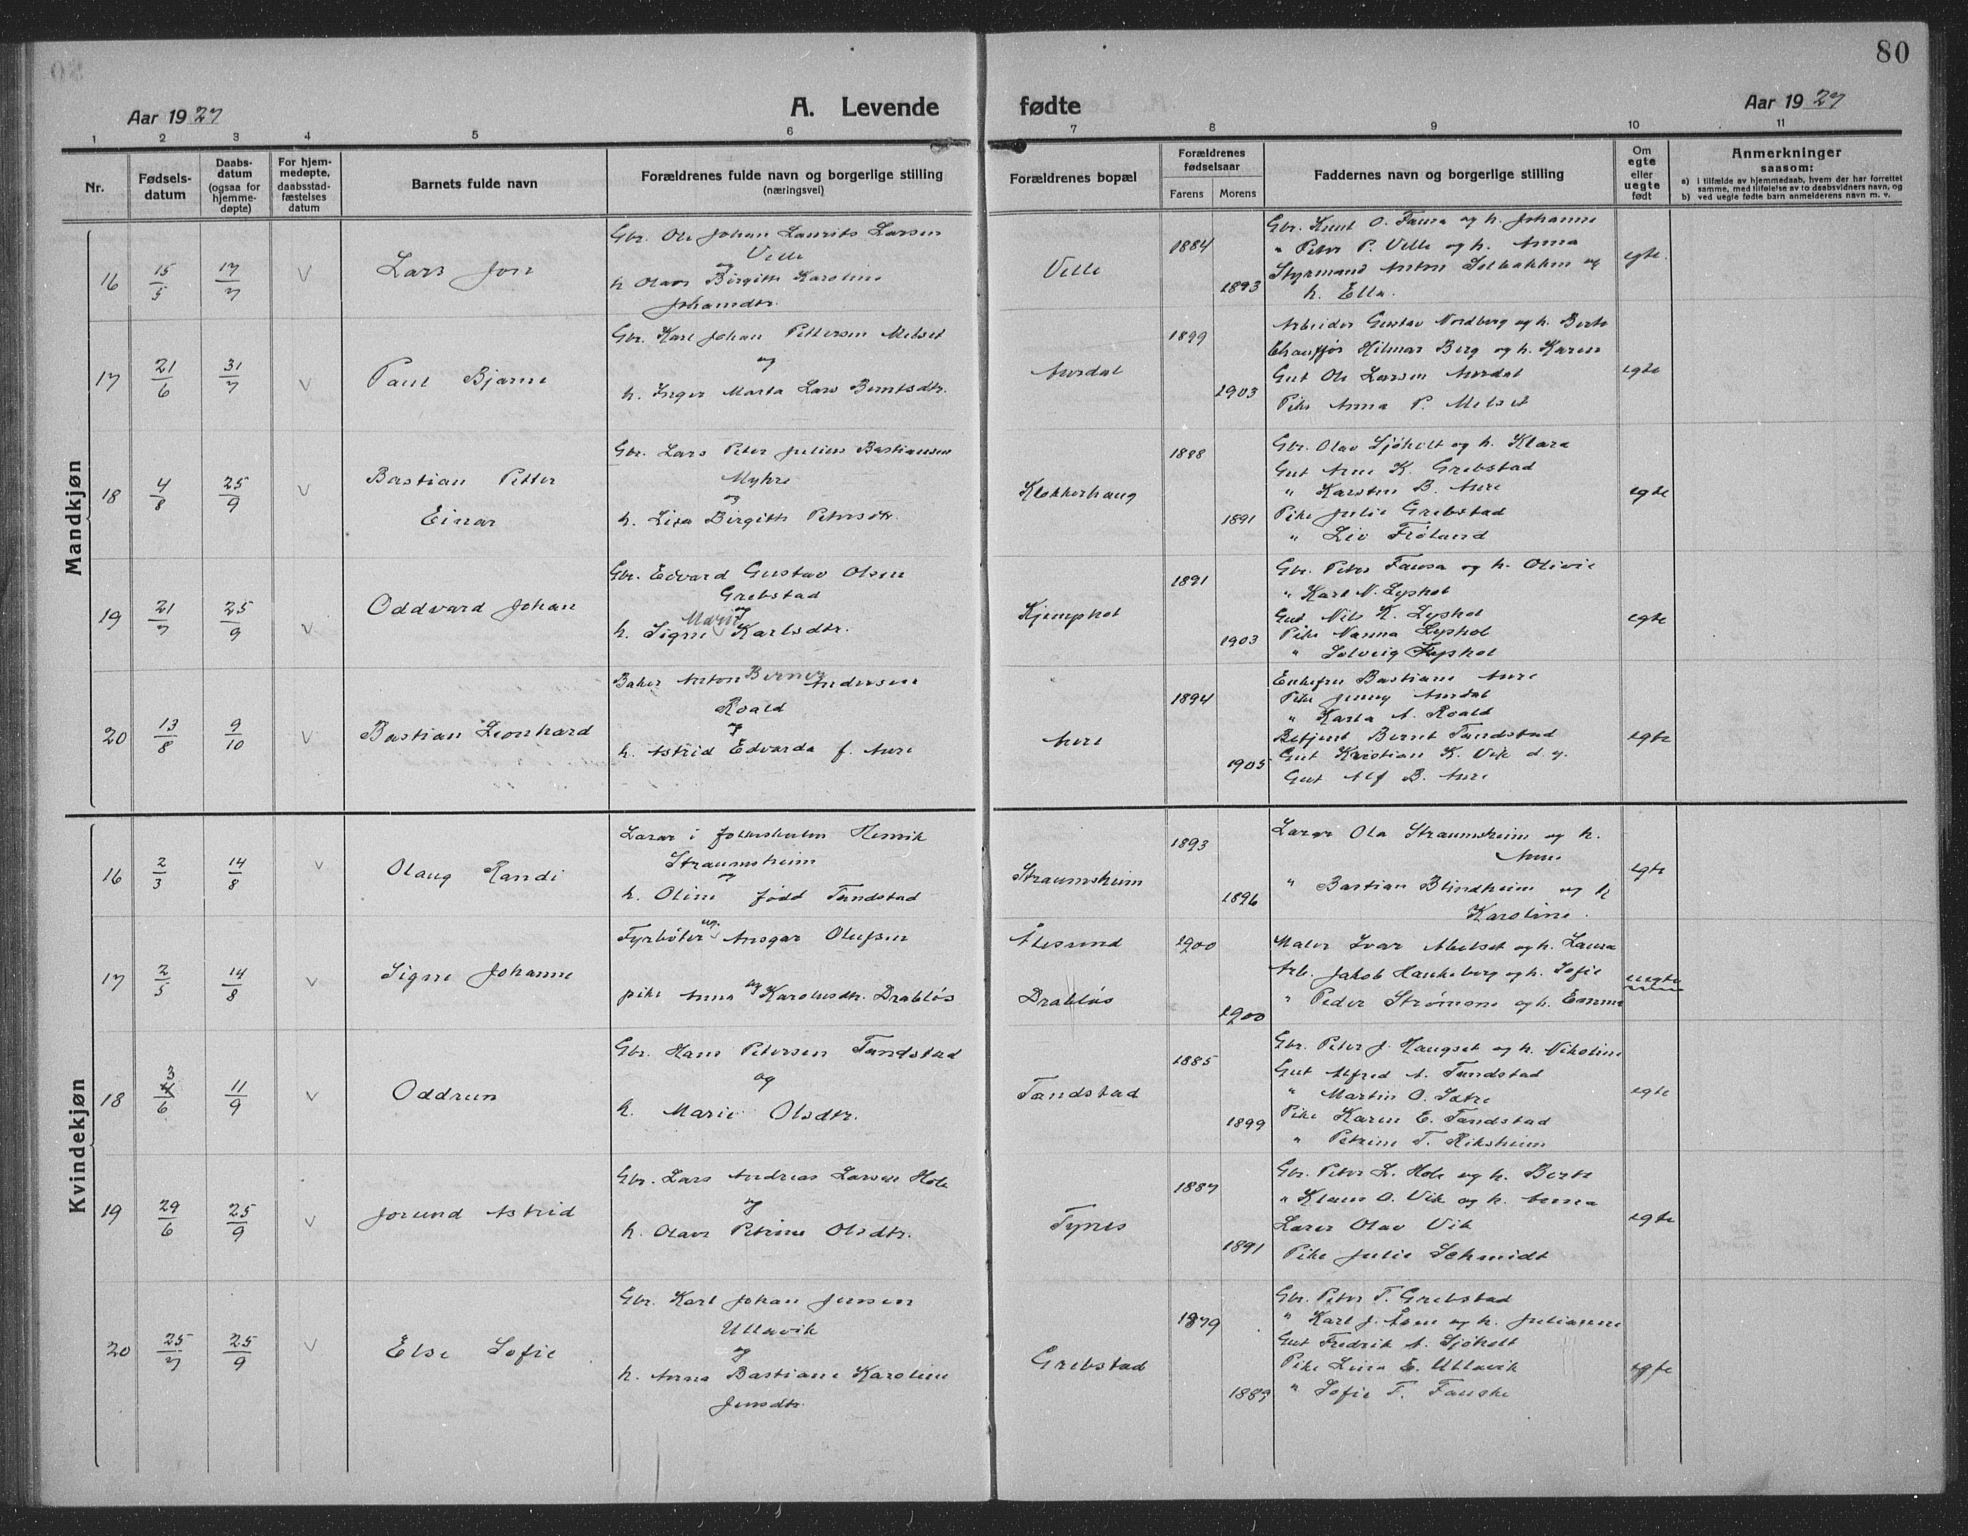 80
Aar 1927
A. Levende
fødte
Aar 1927
1 2 3 4 5 6 7 8 9 10 11
Nr.
Fødsels-
datum
Daabs-
datum
(ogsaa for
hjemme-
døpte)
For hjem-
medøpte,
daabsstad-
fæstelses
datum
Barnets fulde navn
Forældrenes fulde navn og borgerlige stilling
(næringsvei)
Forældrenes bopæl
Forældrenes
fødselsaar
Farens Morens
Faddernes navn og borgerlige stilling
Om
egte
eller
uegte
født
Anmerkninger
saasom:
a) i tilfælde av hjemmedaab, hvem der har forrettet
samme, med tilføielse av to daabsvidners navn, og
b) ved uegte fødte barn anmelderens navn m. v.
Mandkjøn
16 15/5 17/7 V Lars Jon
Gbr. Ole Johan Laurits Larsen
Velle
og
h. Olave Birgithe Karoline
Johansdtr.
Velle
1884
1893
Gbr. Knut O. Fausa og h. Johanne
" Peter P. Velle og h. Anna
Styrmand Anton Solbakken og
h. Ella.
egte.
17 21/6 31/7 V Paul Bjarne
Gbr. Karl Johan Pettersen Melset
og
h. Inger Marta Lars Berntsdtr.
Aurdal
1899
1903
Arbeider Gustav Nordberg og h. Berte
Chauffør Hilmar Berg og h. Karen
Gut Ole Larsen Aurdal
Pike Anna P. Melset
egte
18 4/8 25/9 V Bastian Petter
Einar
Gbr. Lars Peter Julius Bastiansen
Myhre
og
h. Lisa Birgithe Petersdtr.
Klokkerhaug
1888
1891
Gbr. Olav Sjøholt og h. Klara
Gut Arne K. Grebstad
" Karsten B. Aure
Pike Julie Grebstad
" Liv Frøland
egte
19 21/7 25/9 V Oddvard Johan
Gbr. Edvard Gustav Olsen
Grebstad
og
Marie
h. Signe Karlsdtr.
Kjemphol
1891
1903
Gbr. Peter Fausa og h. Olivie
" Karl N. Lyshol
Gut Nils K. Lyshol
Pike Nanna Lyshol
" Solveig Lyshol
egte
20 13/8 9/10 V Bastian Leonhard
Baker Anton Berner Andersen
Roald
og
h. Astrid Edvarda f. Aure
Aure
1894
1905
Enkefru Bastiane Aure
Pike Jenny Aurdal
" Karla A. Roald
Betjent Bernt Tandstad
Gut Kristian K. Vik d. y.
Gut Alf B. Aure
egte
Kvindekjøn
16 2/3 14/8 V Olaug Randi
Lærer i folkeskolen Henrik
Straumsheim
og
h. Oline født Tandstad
Straumsheim
1893
1896
Lærer Ola Straumsheim og h.
Anne
" Bastian Blindheim og h
Karoline.
egte
17 2/5 14/8 V Signe Johanne
Fyrbøter Ansgar Olufsen
og
pike Anna Karolusdtr. Drabløs
Ålesund
Drabløs
1900
1900
Maler Ivar Abelset og h. Laura
Arb. Jakob Haukeberg og h. Sofie
" Peder Strømone og h. Emma
uegte
18 3/6 11/9 V Oddrun
Gbr. Hans Petersen Tandstad
og
h. Marie Olsdtr.
Tandstad
1885
1899
Gbr. Peter J. Haugset og h. Nikoline
Gut Alfred A. Tandstad
" Martin O. Sætre
Pike Karen E. Tandstad
" Petrine T. Riksheim
egte
19 29/6 25/9 V Jorund Astrid
Gbr. Lars Andreas Larsen Hole
og
h. Olave Petrine Olsdtr.
Tynes
1887
1891
Gbr. Peter L. Hole og h. Berte
" Klaus O. Vik og h. Anna
Lærer Olav Vik
Pike Julie Schmidt
egte
20 25/7 25/9 V Else Sofie
Gbr. Karl Johan Jensen
Ullavik
og
h. Anna Bastiane Karoline
Jensdtr.
Grebstad
1879
1889
Gbr. Peter T. Grebstad
" Karl J. Aure og h. Julianne
Gut Fredrik A. Sjøholt
Pike Lina E. Ullavik
" Sofie T. Fauske
egte